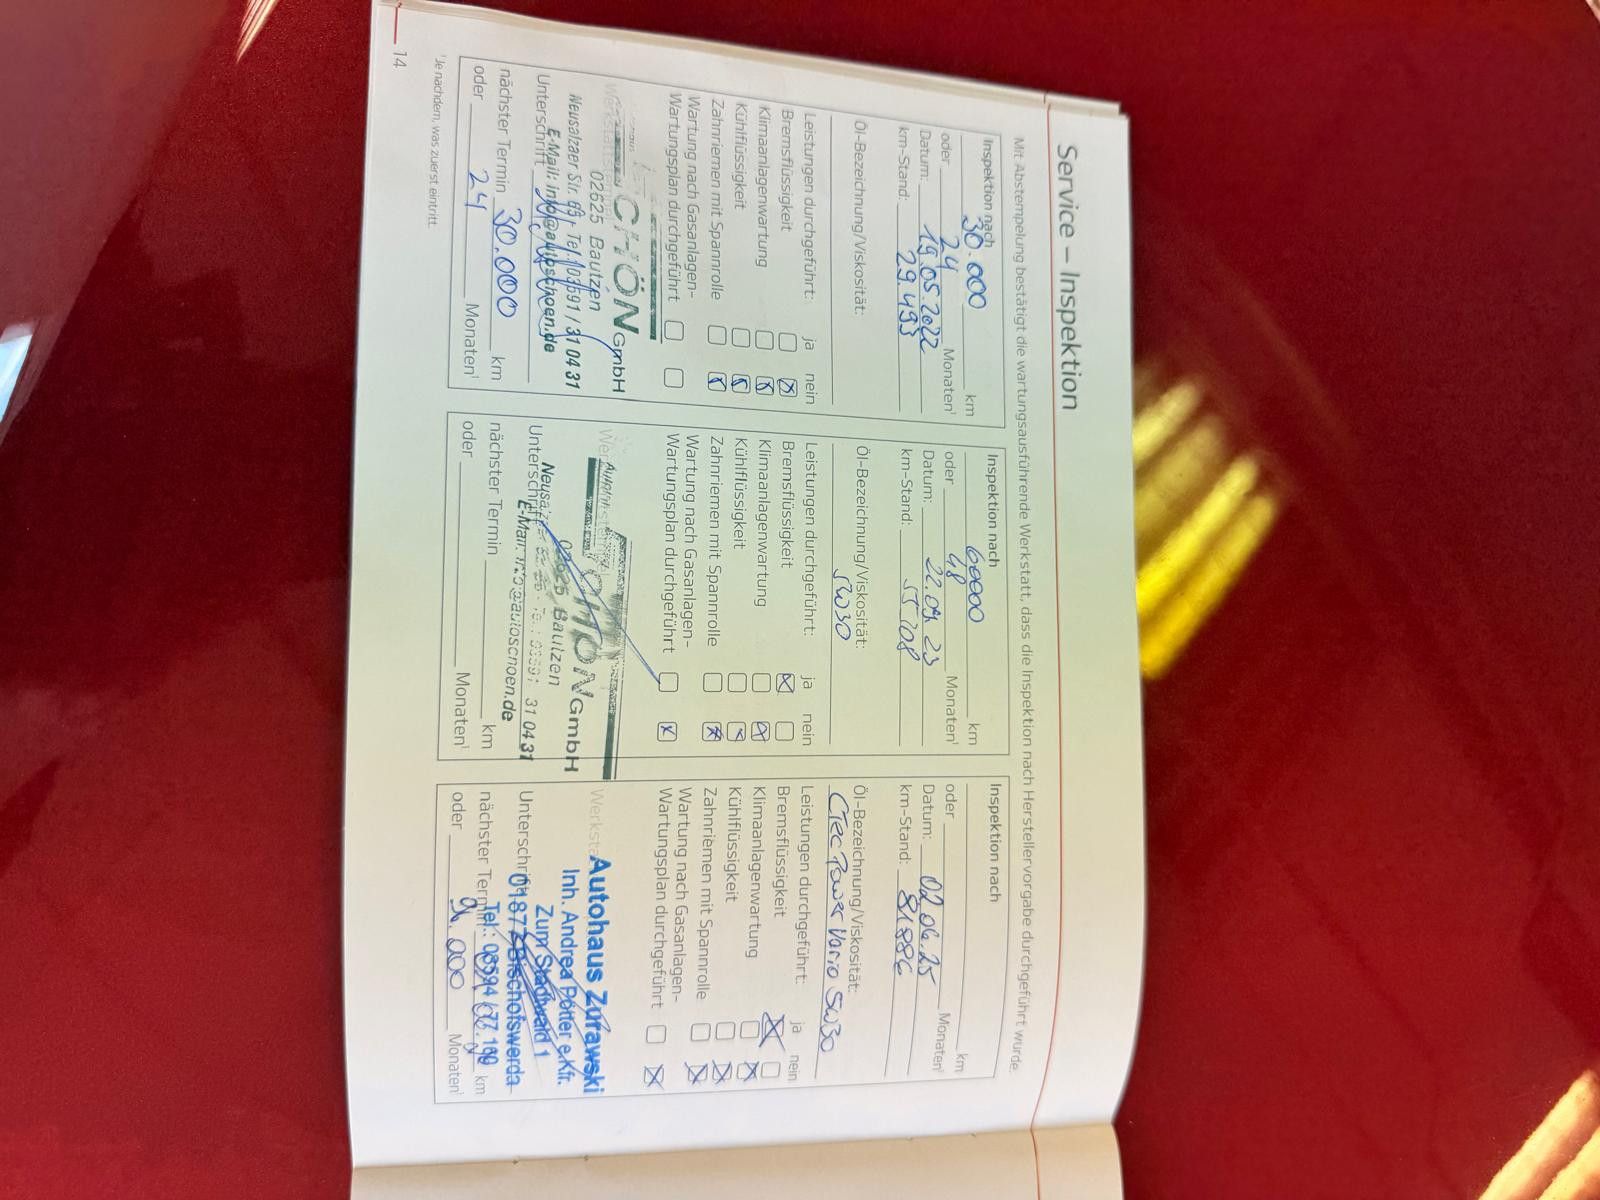 Service – Inspektion
Mit Abstempelung bestätigt die wartungsausführende Werkstatt, dass die Inspektion nach Herstellervorgabe durchgeführt wurde.
Inspektion nach
30.000 km
oder 24 Monaten¹
Datum: 19.05.2022
km-Stand: 29.493
Öl-Bezeichnung/Viskosität:
Leistungen durchgeführt: ja nein
Bremsflüssigkeit
Klimaanlagenwartung
Kühlflüssigkeit
Zahnriemen mit Spannrolle
Wartung nach Gasanlagen-
Wartungsplan durchgeführt
GmbH
02625 Bautzen
Neusalzaer Str. 69 Tel. 03591 / 31 04 31
E-Mail: info@autoschoen.de
Unterschrift
nächster Termin 30.000 km
oder 24 Monaten¹
Inspektion nach
60000 km
oder 48 Monaten¹
Datum: 22.09.23
km-Stand: 55708
Öl-Bezeichnung/Viskosität:
5W30
Leistungen durchgeführt: ja nein
Bremsflüssigkeit
Klimaanlagenwartung
Kühlflüssigkeit
Zahnriemen mit Spannrolle
Wartung nach Gasanlagen-
Wartungsplan durchgeführt
GmbH
02625 Bautzen
31 04 31
E-Mail: info@autoschoen.de
Unterschrift
nächster Termin km
oder Monaten¹
Inspektion nach
km
oder Monaten¹
Datum: 02.06.25
km-Stand:
Öl-Bezeichnung/Viskosität:
CTEC Power Vario 5W30
Leistungen durchgeführt: ja nein
Bremsflüssigkeit
Klimaanlagenwartung
Kühlflüssigkeit
Zahnriemen mit Spannrolle
Wartung nach Gasanlagen-
Wartungsplan durchgeführt
Autohaus Zurawski
Inh. Andrea Pötter e.Kfr.
Zum Stadtwald 1
01877 Bischofswerda
Unterschrift
nächster Termin km
oder Monaten¹
¹Je nachdem, was zuerst eintritt.
14